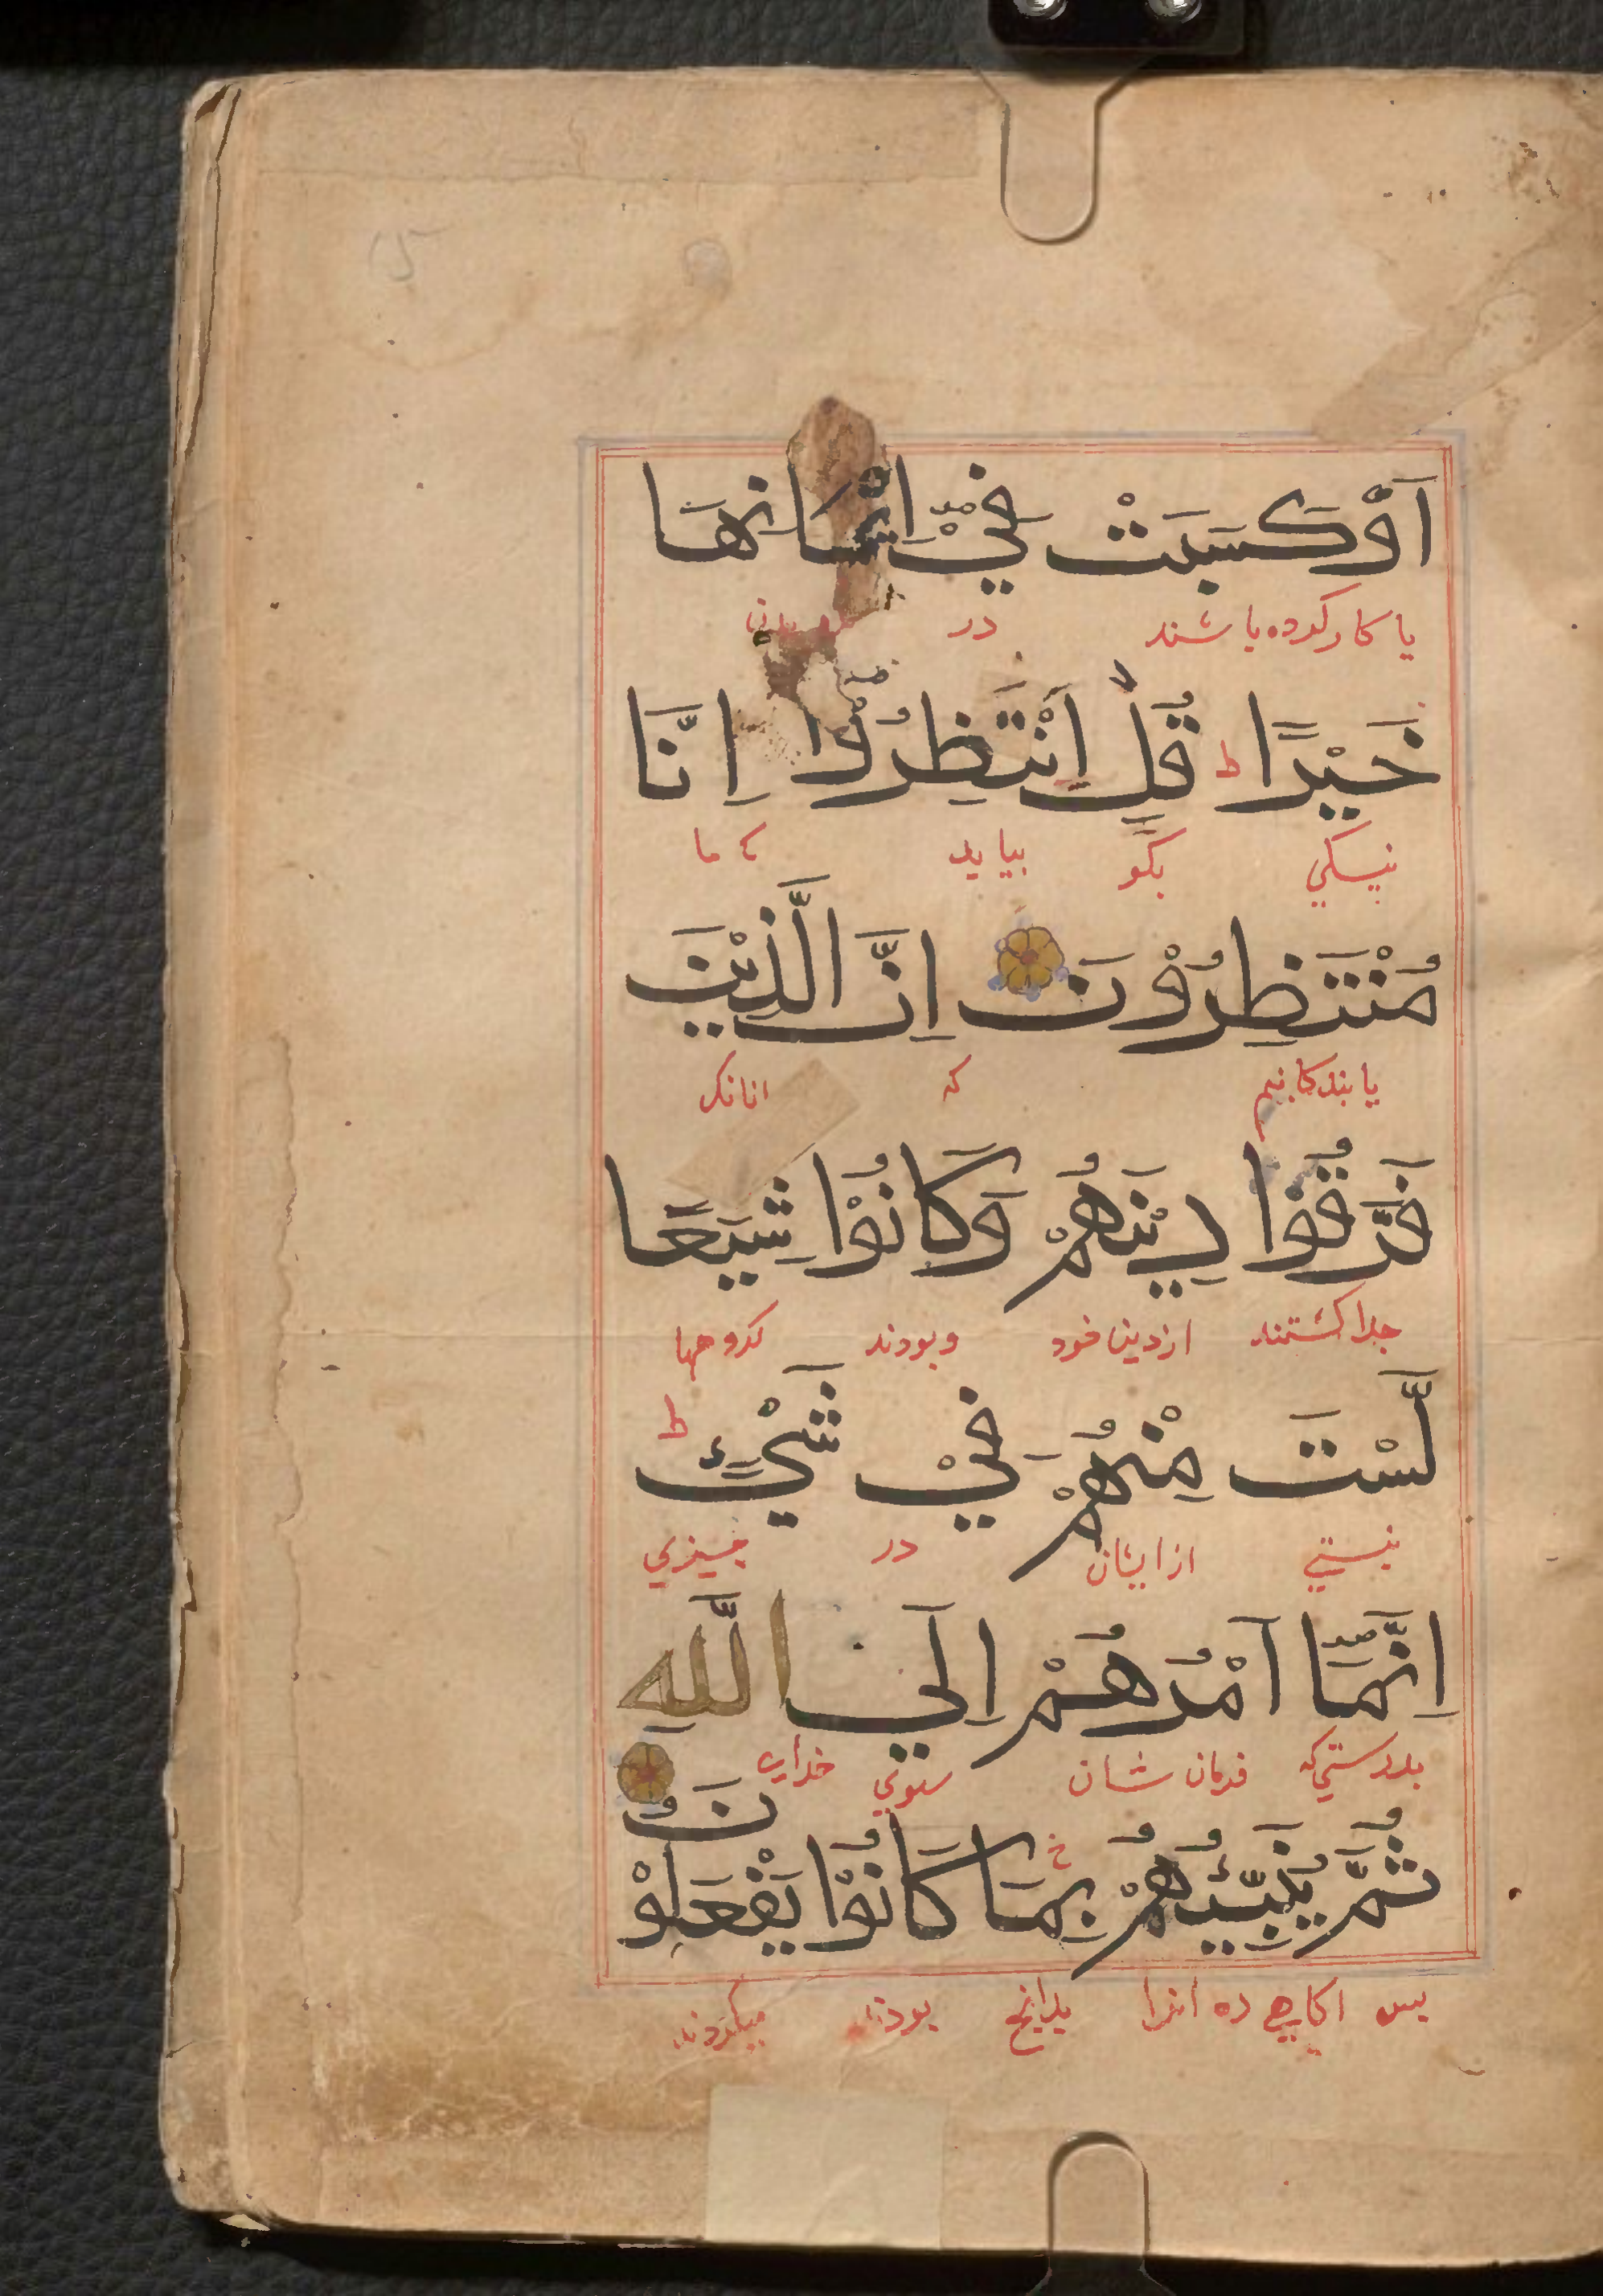 15
اَوْ كَسَبَتْ فِيْٓ اِيْمَانِهَا
يا كار كرده باشند در
خَيْرًا ط قُلِ انْتَظِرُوْٓا اِنَّا
نيكي بكو بيايد كه ما
مُنْتَظِرُوْنَ اِنَّ الَّذِيْنَ
يابندكانيم كه انانكه
فَرَّقُوْا دِيْنَهُمْ وَكَانُوْا شِيَعًا
جدا كشتند از دين خود و بودند كروهها
لَّسْتَ مِنْهُمْ فِيْ شَيْءٍ ط
نيستي از ايشان در چيزي
اِنَّمَآ اَمْرُهُمْ اِلَي اللّٰهِ
بدرستي كه فرمان شان سوي خداي
ثُمَّ يُنَبِّئُهُمْ بِمَا كَانُوْا يَفْعَلُوْنَ
پس اكاهي ده انرا بدانچ بودند ميكردند